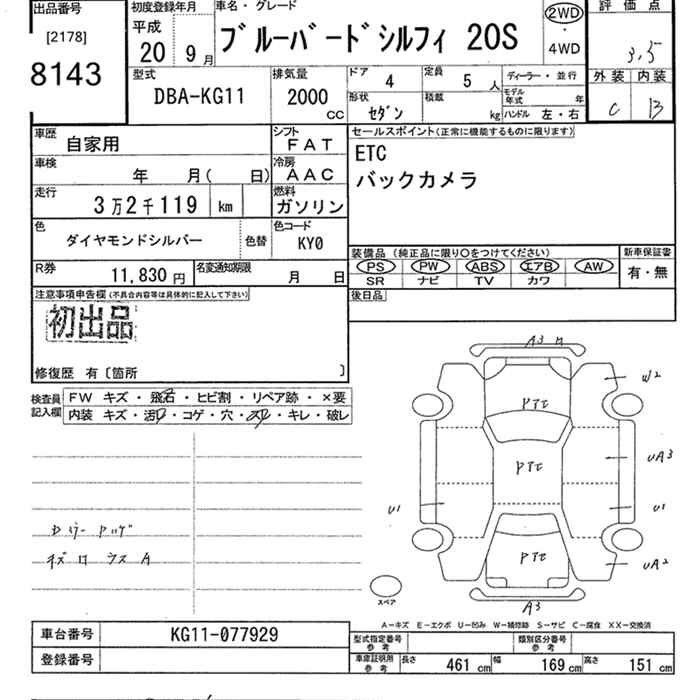 出品番号
[2178]
8143
初度登録年月
平成
20 9月
車名・グレード
ブルーバードシルフィ 20S
2WD
・
4WD
評価点
3.5
外装 内装
C B
型式
DBA-KG11
排気量
2000
CC
ドア 4
定員 5 人
ディーラー・並行
形状 セダン
積載 kg
モデル年式 年
ハンドル 左・右
車歴 自家用
シフト FAT
車検 年 月( 日)
冷房 AAC
走行 3万2千119 km
燃料 ガソリン
色 ダイヤモンドシルバー
色替
色コード KY0
R券 11,830円
名変通知期限 月 日
セールスポイント(正常に機能するものに限ります)
ETC
バックカメラ
装備品 (純正品に限り○をつけてください)
新車保証書
PS PW ABS エアB AW
有・無
SR ナビ TV カワ
後日品
注意事項申告欄(不具合内容等は具体的に記入して下さい)
初出品
修復歴 有〔箇所 〕
検査員記入欄
FW キズ・飛石・ヒビ割・リペア跡・×要
内装 キズ・汚レ・コゲ・穴・スレ・キレ・破レ
A3
W2
PTC
UA3
PTC
U1
U1
PTC
UA2
A3
キズロ ウス A
スペア
A−キズ E−エクボ U−凹み W−補修跡 S−サビ C−腐食 XX−交換済
車台番号 KG11-077929
登録番号
型式指定番号 参考
類別区分番号 参考
車庫証明用 参考
長さ 461 cm
幅 169 cm
高さ 151 cm